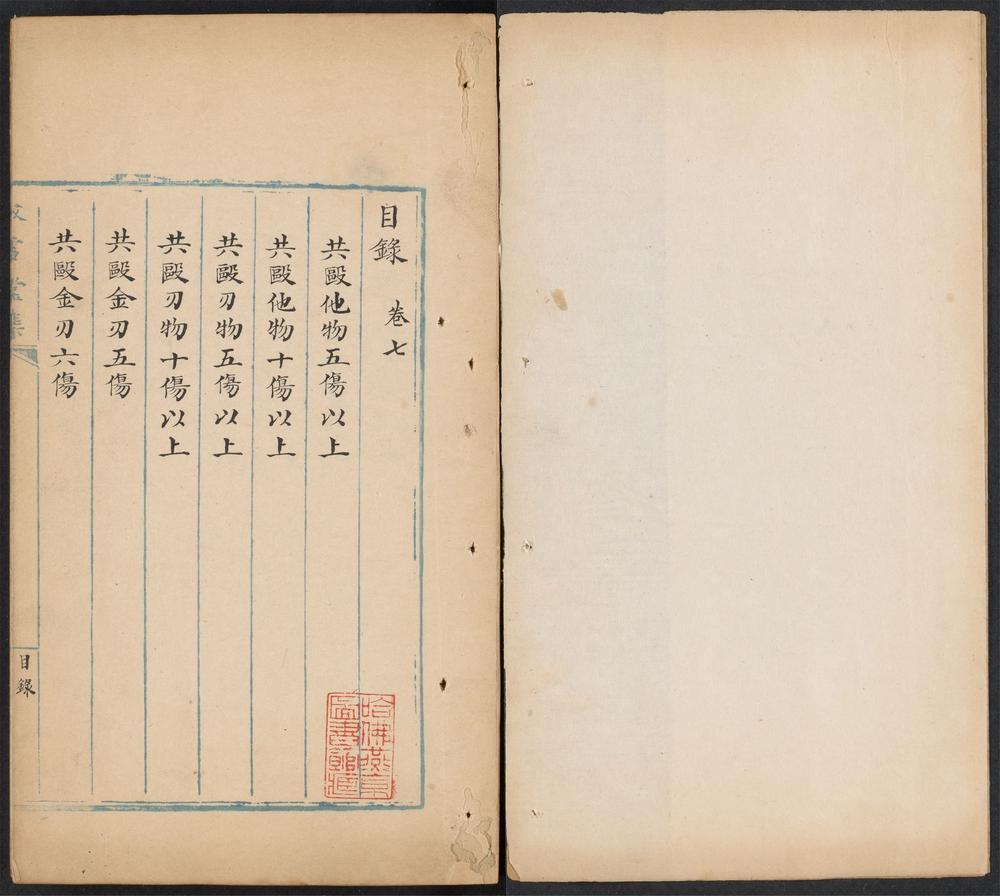 目錄 卷七
共毆他物五傷以上
共毆他物十傷以上
共毆刃物五傷以上
共毆刃物十傷以上
共毆金刃五傷
共毆金刃六傷
目錄
哈佛燕京
圖書館藏